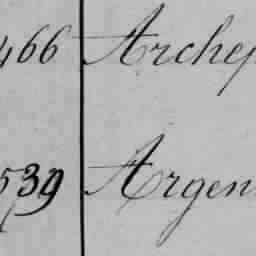 466 Archep
539 Argen